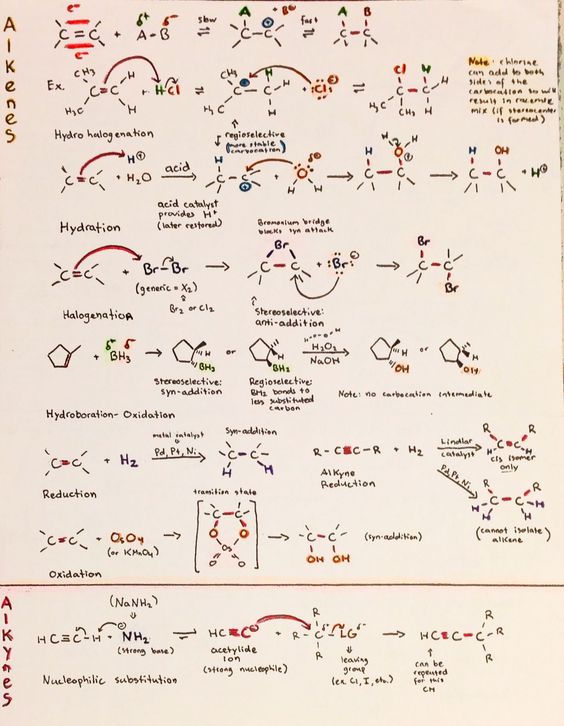 Alkenes
e⁻
C=C + A-B δ+ δ- slow ⇌ A C-C ⊕ + B⊖ fast ⇌ A B C-C
e⁻
Ex. CH₃ H₃C C=C H H + HCl ⇌ CH₃ H₃C C-C H H H + :Cl:⊖ ⇌ Cl H H-C-C-H CH₃ H
Note: chlorine
can add to both
sides of the
carbocation so will
result in racemic
mix (if stereocenter
is formed)
Hydrohalogenation
regioselective
(more stable
carbocation)
C=C H⊕ + H₂O acid → H C-C ⊕ + H O H δ- → H H H O⊕ C-C → H OH C-C + H⊕
acid catalyst
provides H⁺
(later restored)
Hydration
Bromonium bridge
blocks syn attack
C=C + Br-Br → Br C-C + :Br:⊖ → Br C-C Br
(generic = X₂)
Br₂ or Cl₂
Stereoselective:
anti-addition
Halogenation
+ BH₃ δ+ δ- → H BH₂ or H BH₂ H₂O₂ NaOH → H OH or H OH
Stereoselective:
syn-addition
Regioselective:
BH₂ bonds to
less substituted
carbon
Note: no carbocation intermediate
Hydroboration-Oxidation
C=C + H₂ metal catalyst Pd, Pt, Ni → Syn-addition C-C H H
Reduction
R-C≡C-R + H₂
Alkyne
Reduction
Lindlar
catalyst
R R C=C H H
cis isomer
only
Pd, Pt, Ni
R R H-C-C-H H H
(cannot isolate)
alkene
transition state
C=C + OsO₄ → C-C O O Os O O → C-C OH OH (syn-addition)
(or KMnO₄)
Oxidation
Alkynes
(NaNH₂)
HC≡C-H + NH₂ ⊖ ⇌ HC≡C⊖ + R-C-LG R R δ+ δ- → HC≡C-C-R R R
(strong base)
acetylide
ion
(strong nucleophile)
leaving
group
(ex. Cl, I, etc.)
can be
repeated
for this
CH
Nucleophilic substitution